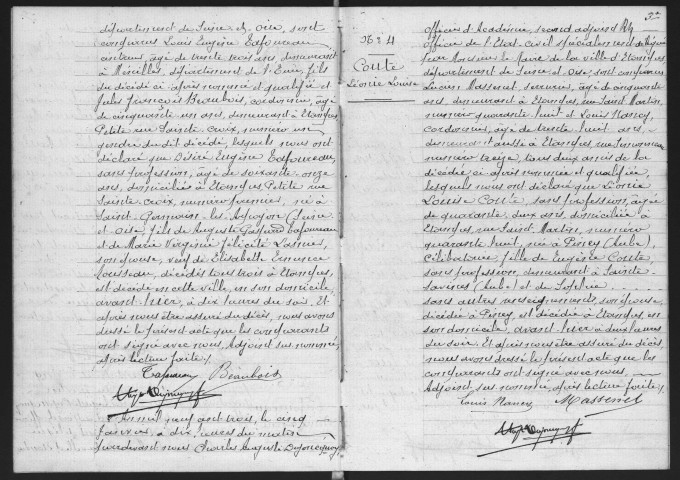 département de Seine et Oise, sont
comparus Louis Eugène Lafoureau
âgé de trente trois ans, demeurant
à département de l'Eure, fils
du décédé ci-après nommé et qualifié et
Jules François Beaubois, cordonnier, âgé
de cinquante un ans, demeurant à Etampes,
Petite rue Sainte Croix, numéro un
gendre du dit décédé, lesquels nous ont
déclaré que Désiré Eugène
sans profession, âgé de soixante onze
ans, domicilié à Etampes, Petite rue
Sainte-Croix, numéro premier, né à
Saint Germain-les-Arpajon (Seine
et Oise, fils de Auguste Gaspard
et de Marie Virginie Félicité
son épouse, veuf de Elisabeth Ermence
décédés tous trois à Etampes,
est décédé en cette ville, en son domicile,
avant-hier, à dix heures du soir. Et
après nous être assuré du décès, nous avons
dressé le présent acte que les comparants
ont signé avec nous, Adjoint sus nommé,
après lecture faite./.
Beaubois
L'an mil neuf cent trois, le cinq
Janvier, à dix heures du matin
pardevant nous Charles Auguste Dujoncquoy,
N° 4
Coute
Léonie Louise
officier d'Académie, second adjoint
officier de l'Etat civil spécialement délégué
par Monsieur le Maire de la ville d'Etampes,
département de Seine et Oise, sont comparus
Lucien Massenet, serrurier, âgé de cinquante
ans, demeurant à Etampes, rue Saint Martin,
numéro quarante huit et Louis Nancey,
cordonnier, âgé de trente huit ans,
demeurant aussi à Etampes, rue
numéro treize, tous deux amis de la
décédée ci-après nommée et qualifiée,
lesquels nous ont déclaré que Léonie
Louise Coute, sans profession, âgée
de quarante deux ans, domiciliée à
Etampes, rue Saint Martin, numéro
quarante huit, née à Piney (Aube),
Célibataire, fille de Eugène Coute
sans profession, demeurant à Sainte
Savine (Aube) et de
sans autres renseignements, son épouse,
décédée à Piney, est décédée à Etampes, en
son domicile, avant-hier à deux heures
du soir. Et après nous être assuré du décès,
nous avons dressé le présent acte que les
comparants ont signé avec nous,
Adjoint sus nommé, après lecture faite./.
Louis Nancey Massenet